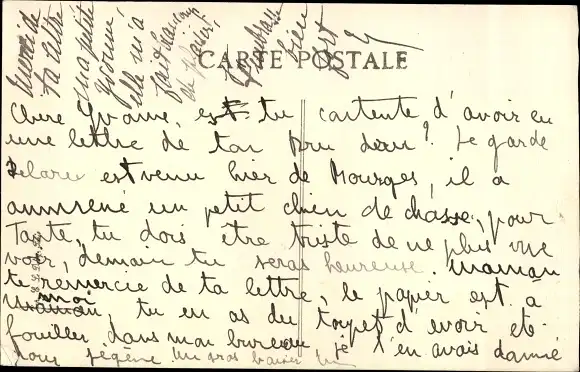 Merci de
ta lettre
ma petite
Yvonne,
elle m'a
fait
de plaisir,
Je t'embrasse
bien
fort
CARTE POSTALE
Chere Yvonne, es tu contente d'avoir eu
une lettre de ton ? Le garde
est venu hier de Bourges, il a
ammené un petit chien de chasse, pour
Tante, tu dois être triste de ne plus me
voir, demain tu seras heureuse. Maman
te remercie de ta lettre, le papier est à
moi
maman, tu en as du toupet d'avoir été
fouiller dans mon bureau je t'en avais donné
pour Un gros baiser